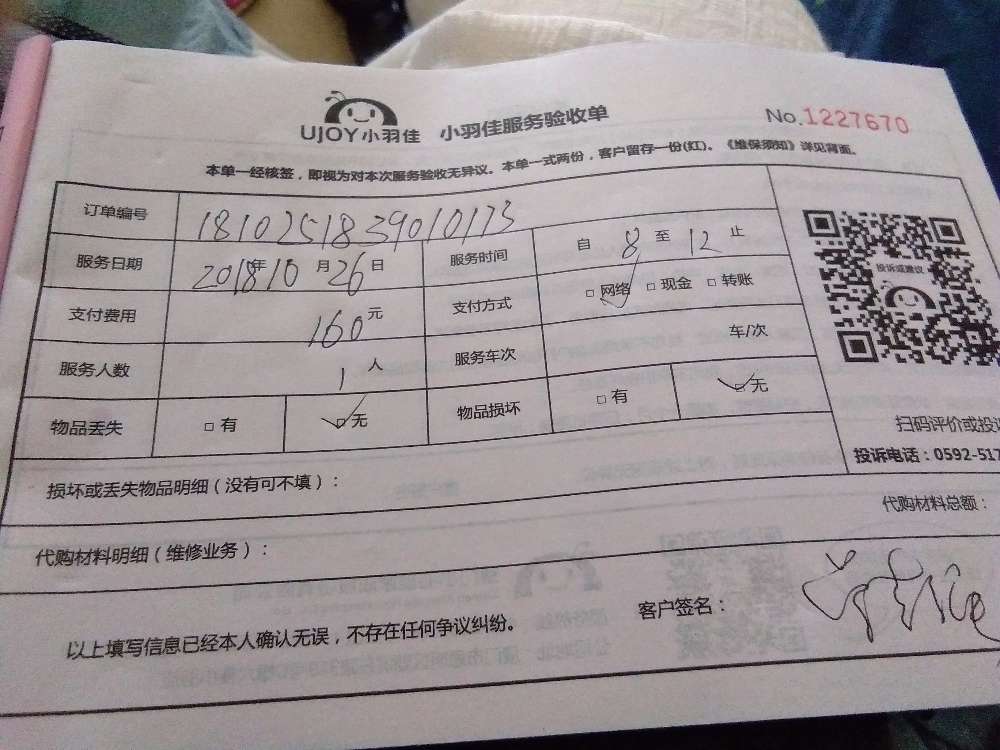 UJOY小羽佳 小羽佳服务验收单 No.1227670
本单一经核签，即视为对本次服务验收无异议。本单一式两份，客户留存一份(红)。《维保须知》详见背面。
订单编号 1810251839010173
服务日期 2018年10月26日 服务时间 自 8 至 12 止
支付费用 160元 支付方式 □网络 □现金 □转账
服务人数 1人 服务车次 车/次
物品丢失 □有 □无 物品损坏 □有 □无
投诉或建议
扫码评价或投
投诉电话：0592-517
损坏或丢失物品明细（没有可不填）：
代购材料总额：
代购材料明细（维修业务）：
以上填写信息已经本人确认无误，不存在任何争议纠纷。 客户签名：